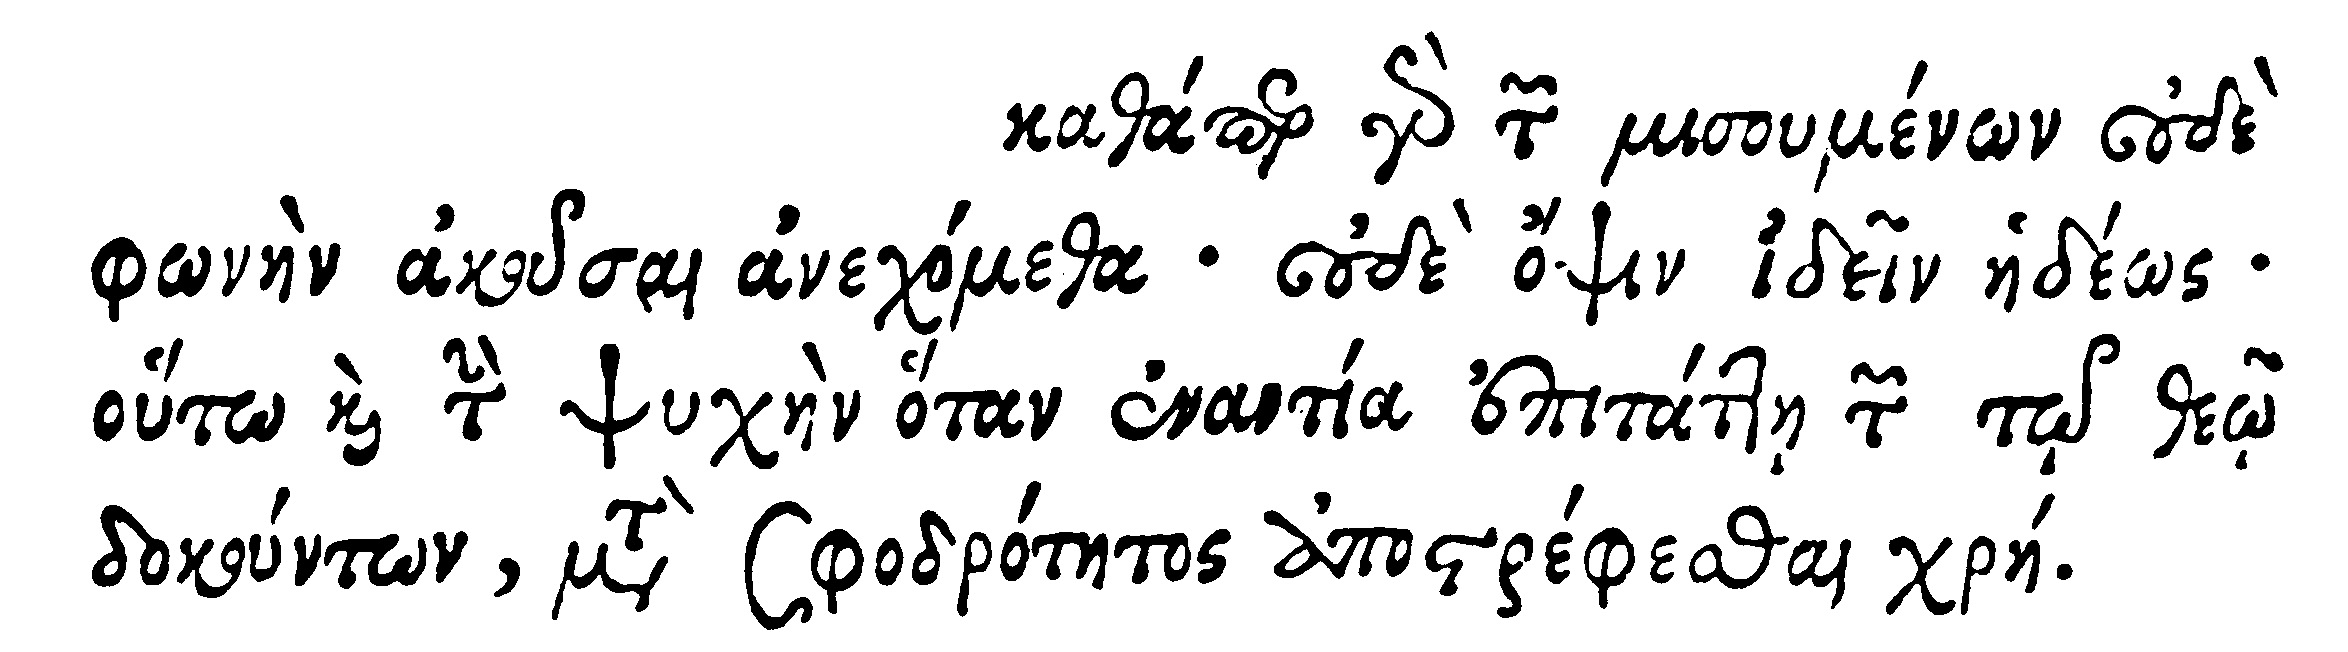 καθάπερ γὰρ τῶν μισουμένων οὐδὲ
φωνὴν ἀκοῦσαι ἀνεχόμεθα · οὐδὲ ὄψιν ἰδεῖν ἡδέως ·
οὕτω καὶ τὴν ψυχὴν ὅταν ἐναντία ἐπιτάττῃ τῶν τῷ θεῷ
δοκούντων, μετὰ σφοδρότητος ἀποστρέφεσθαι χρή.